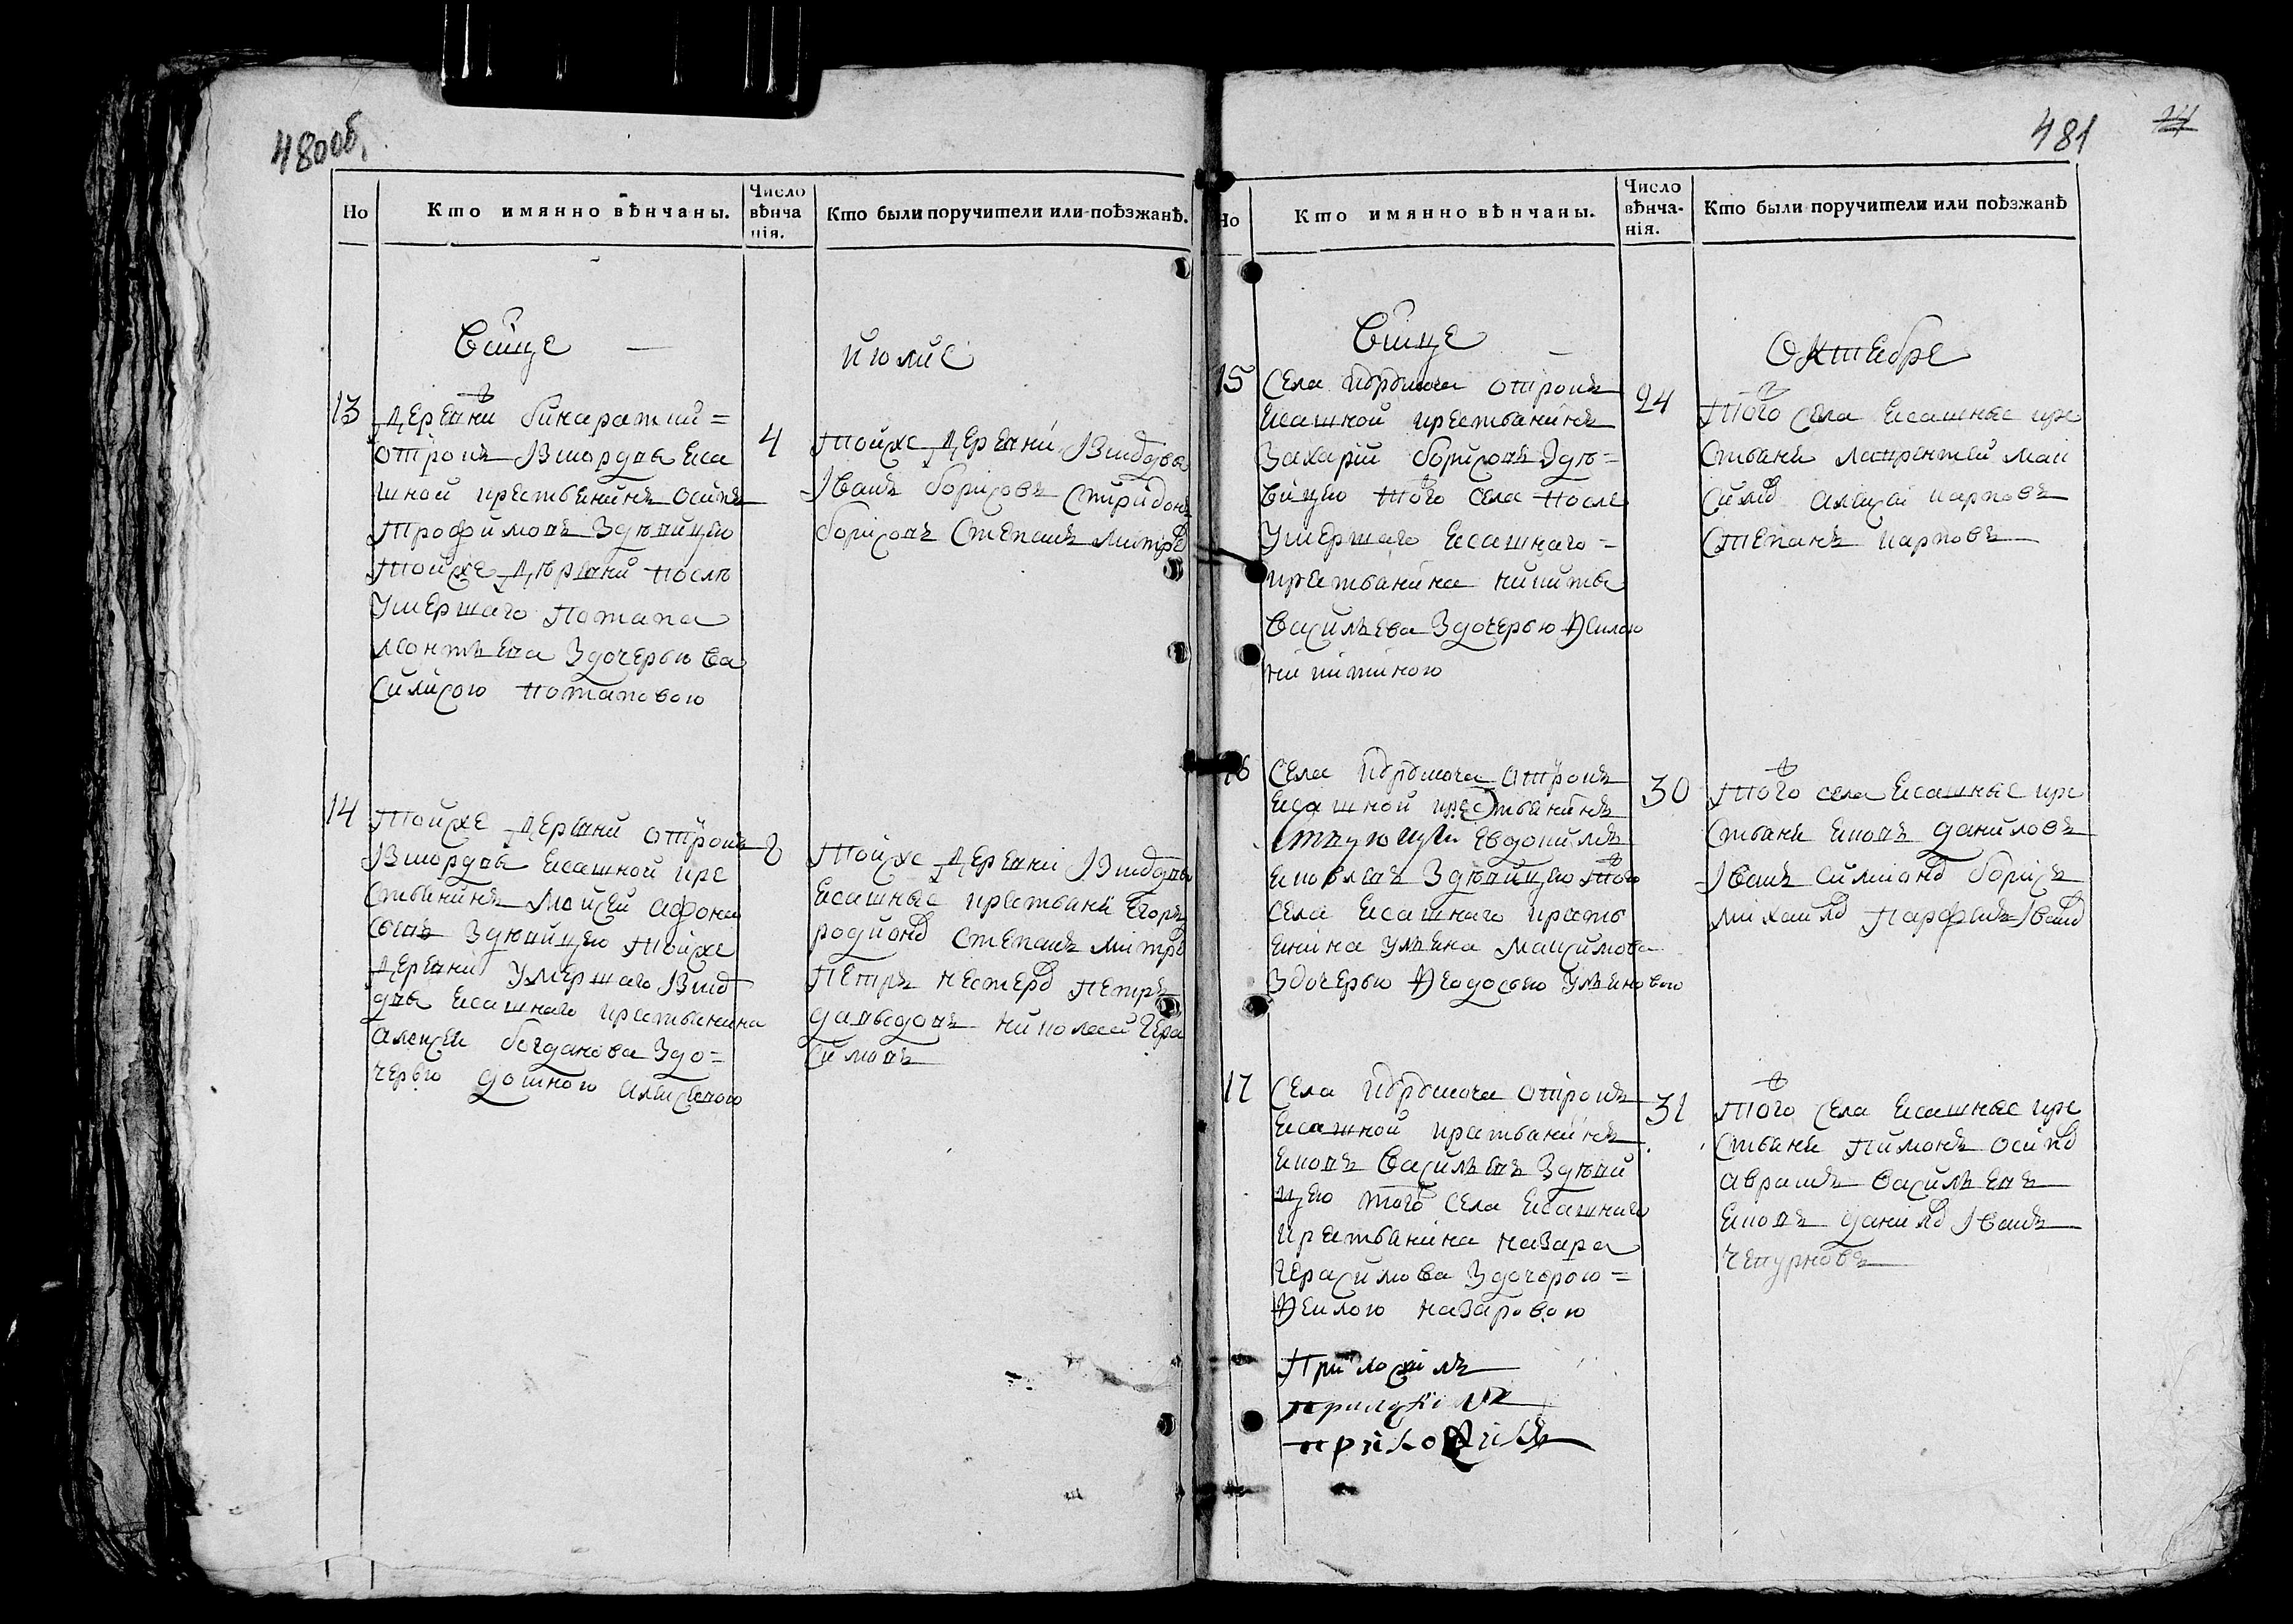 480об.
Но
Кто имянно вѣнчаны.
Число
вѣнча
нія.
Кто были поручители или поѣзжанѣ.
июлЕ
13
дерЕвни
отрокъ
шной крествянинъ осипъ
Трофимовъ Здѣвицею
Тойже дѣрЕвни послѣ
УмЕршаго Потапа
Здочерью Ва
силисою потаповою
4
Тойже дЕрЕвни
Iванъ борисовъ Спиридонъ
борисовъ Степанъ митре
14
Тойже дЕрЕвни отрокъ
ясашной кре
ствянинъ Мойсей афона
сьевъ Здѣвицею тойже
дЕрЕвни УмЕршаго
ясашнаго крествянина
алексЕя богданова Здо=
черью алексЕвою
8
Тойже дЕрЕвни
ясашные крествянЕ Егоръ
родионъ Степанъ митре
пЕтръ нестеръ пЕтръ
давыдовъ николай гера
симовъ
481
Но
Кто имянно вѣнчаны.
Число
вѣнча-
нія.
Кто были поручители или поѣзжанѣ
ОктЕбрЕ
15
сЕла отрокъ
ясашной крествянинъ
Захарий борисовъ Здѣ=
вицею того сЕла послЕ
УмЕршаго ясашнаго=
крествянина никиты
ВасильЕва Здочерью Феклою
никитиною
24
того сЕла ясашные кре
ствянЕ лаврентей мак
симъ алексЕй карповъ
СтЕпанъ карповъ
16
сЕла отрокъ
ясашной крествянинъ
Евдокимъ
яковлЕвъ Здѣвицею того
сЕла ясашнаго крЕств
янина Ульяна Максимова
Здочерью Феодосью Ульяновою
30
того села ясашные кре
ствянЕ яковъ даниловъ
Iванъ симионъ борисъ
михаилъ парфенъ Iванъ
17
сЕла отрокъ
ясашной крествянинъ
яковъ ВасильЕвъ Здѣви
цею того сЕла ясашнаго
крествянина назара
герасимова Здочерью=
Феклою назаровою
31
того сЕла ясашные кре
ствянЕ пимонъ осипъ
аврамъ васильЕвъ
яковъ данилъ Iванъ
чЕпурновъ
Приложилъ
приложилъ
приложилъ